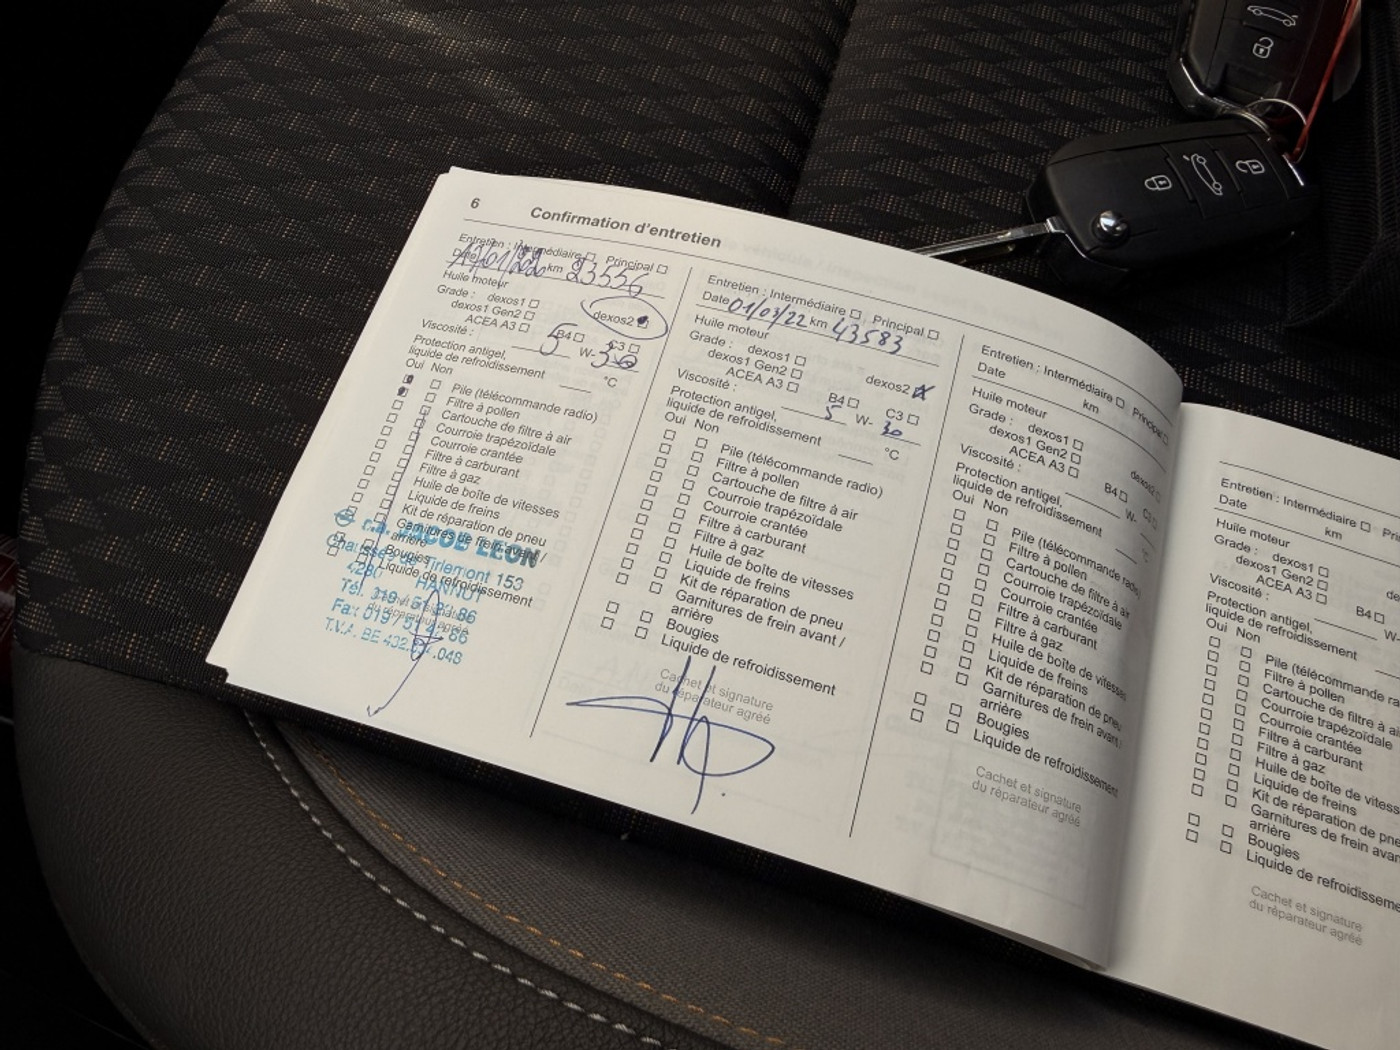 6 Confirmation d'entretien
Entretien : Intermédiaire Principal
Date km 23556
Huile moteur
Grade : dexos1 dexos2
dexos1 Gen2
ACEA A3 B4 C3
Viscosité : 5 W- 30
Protection antigel,
liquide de refroidissement °C
Oui Non
Pile (télécommande radio)
Filtre à pollen
Cartouche de filtre à air
Courroie trapézoïdale
Courroie crantée
Filtre à carburant
Filtre à gaz
Huile de boîte de vitesses
Liquide de freins
Kit de réparation de pneu
Garnitures de frein avant /
arrière
Bougies
Liquide de refroidissement
LEON
Chaussée de Tirlemont 153
HANNUT
Tél. 019
Fax 019 / 51
T.V.A. BE 432. .048
Entretien : Intermédiaire Principal
Date 01/03/22 km 43583
Huile moteur
Grade : dexos1 dexos2
dexos1 Gen2
ACEA A3 B4 C3
Viscosité : 5 W- 30
Protection antigel,
liquide de refroidissement °C
Oui Non
Pile (télécommande radio)
Filtre à pollen
Cartouche de filtre à air
Courroie trapézoïdale
Courroie crantée
Filtre à carburant
Filtre à gaz
Huile de boîte de vitesses
Liquide de freins
Kit de réparation de pneu
Garnitures de frein avant /
arrière
Bougies
Liquide de refroidissement
Cachet et signature
du réparateur agréé
Entretien : Intermédiaire Principal
Date km
Huile moteur
Grade : dexos1 dexos2
dexos1 Gen2
ACEA A3 B4 C3
Viscosité : W-
Protection antigel,
liquide de refroidissement °C
Oui Non
Pile (télécommande radio)
Filtre à pollen
Cartouche de filtre à air
Courroie trapézoïdale
Courroie crantée
Filtre à carburant
Filtre à gaz
Huile de boîte de vitesses
Liquide de freins
Kit de réparation de pneu
Garnitures de frein avant /
arrière
Bougies
Liquide de refroidissement
Cachet et signature
du réparateur agréé
Entretien : Intermédiaire Pri
Date km
Huile moteur
Grade : dexos1 de
dexos1 Gen2
ACEA A3 B4
Viscosité : W-
Protection antigel,
liquide de refroidissement
Oui Non
Pile (télécommande ra
Filtre à pollen
Cartouche de filtre à ai
Courroie trapézoïdale
Courroie crantée
Filtre à carburant
Filtre à gaz
Huile de boîte de vites
Liquide de freins
Kit de réparation de pne
Garnitures de frein avan
arrière
Bougies
Liquide de refroidisseme
Cachet et signature
du réparateur agréé